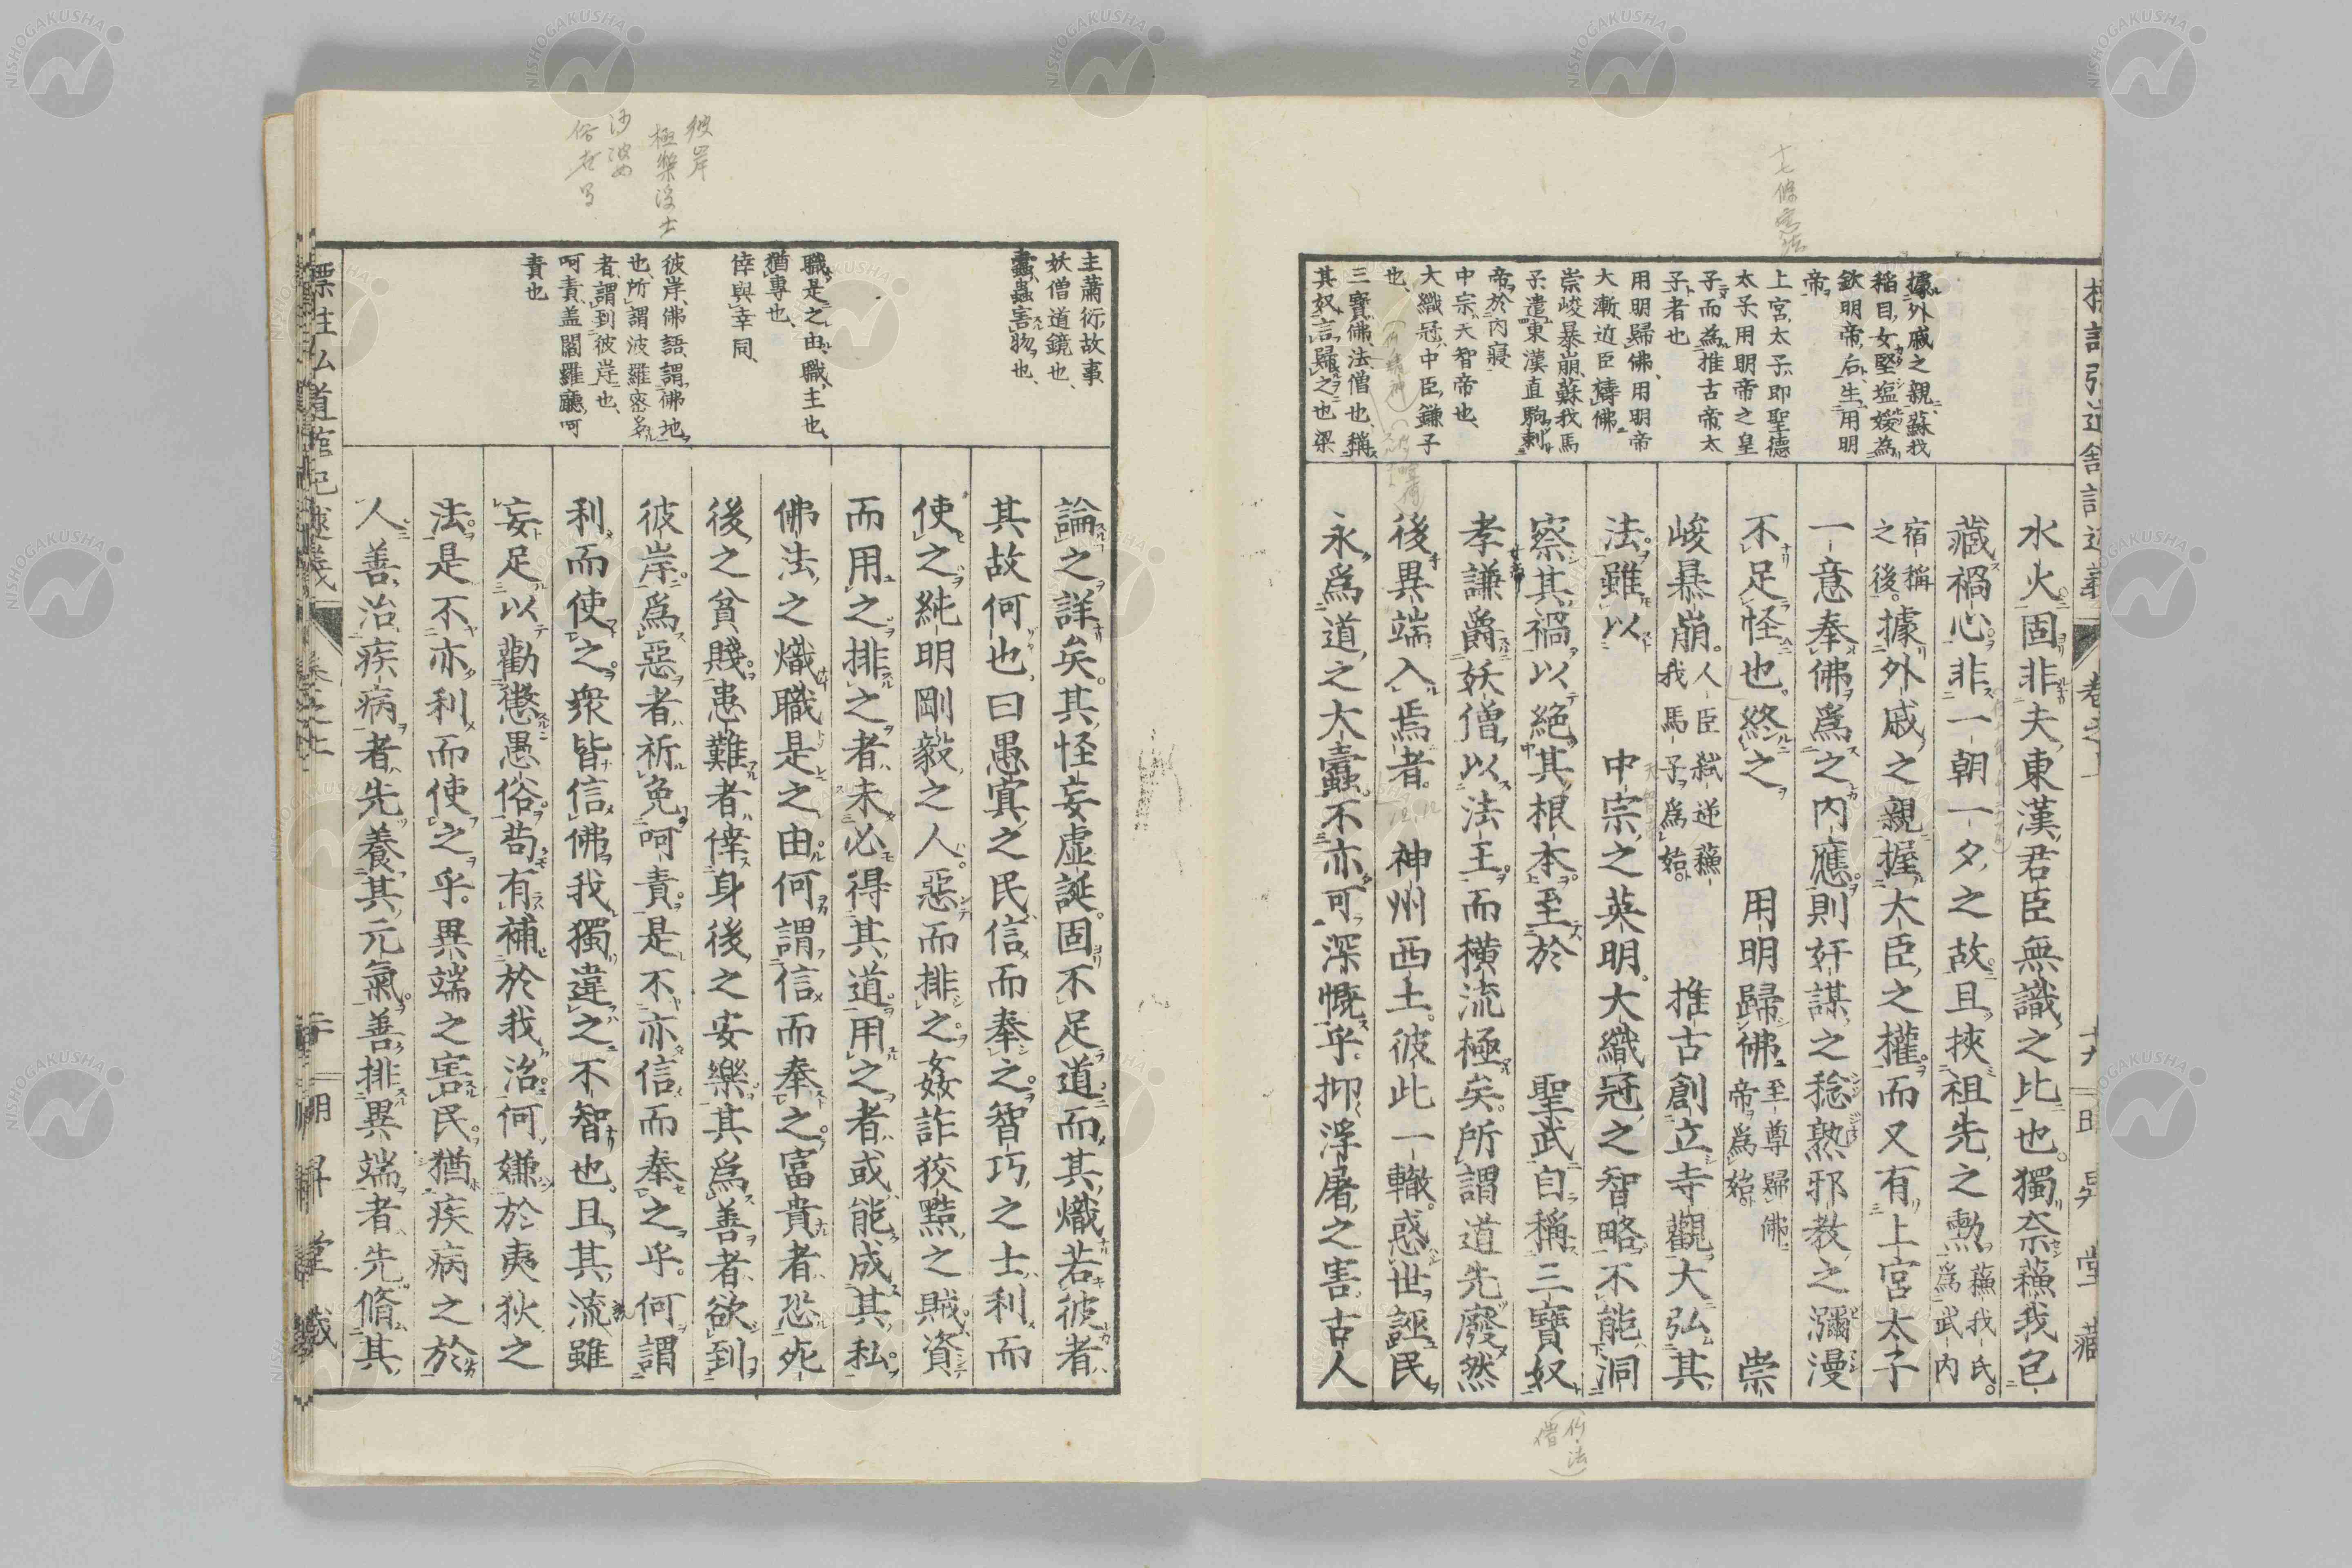 據外戚之親蘇我
稲目女堅塩媛為
欽明帝后生用明
帝
上宮太子即聖德
太子用明帝之皇
子而為推古帝太
子者也
用明歸佛用明帝
大漸近臣禱佛
崇峻暴崩蘇我馬
子遣東漢直駒刺
帝於內寢
中宗天智帝也
大織冠中臣鎌子
也
三寶佛法僧也稱
其奴言歸之也梁
水火固非夫東漢君臣無識之比也獨奈蘓我包
藏禍心非一朝一夕之故且挾祖先之勲蘓我氏為武內
宿稱之後據外戚之親握大臣之權而又有上宮太子
一意奉佛爲之內應則奸謀之稔熟邪教之瀰漫
不足怪也終之 用明歸佛至尊歸佛帝為始 崇
峻暴崩人臣弑逆蘓我馬子為始 推古創立寺觀大弘其
法雖以 中宗之英明大織冠之智略不能洞
察其禍以絶其根本至於 聖武自稱三寶奴
孝謙爵妖僧以法王而橫流極矣所謂道先廢然
後異端入焉者 神州西土彼此一轍惑世誣民
永爲道之大蠹不亦可深慨乎抑浮屠之害古人
主蕭衍故事
妖僧道鏡也
蠹蟲害物也
職是之由職主也
猶專也
倖與幸同
彼岸佛語謂佛地
也所謂波羅密多
者謂到彼岸也
呵責盖閻羅廳呵
責也
論之詳矣其怪妄虛誕固不足道而其熾若彼者
其故何也曰愚寘之民信而奉之智巧之士利而
使之純明剛毅之人惡而排之姦詐狡黠之賊資
而用之排之者未必得其道用之者或能成其私
佛法之熾職是之由何謂信而奉之富貴者恐死
後之貧賤患難者倖身後之安樂其爲善者欲到
彼岸爲惡者祈免呵責是不亦信而奉之乎何謂
利而使之衆皆信佛我獨違之不智也且其流雖
妄足以勸懲愚俗苟有補於我治何嫌於夷狄之
法是不亦利而使之乎異端之害民猶疾病之於
人善治疾病者先養其元氣善排異端者先脩其